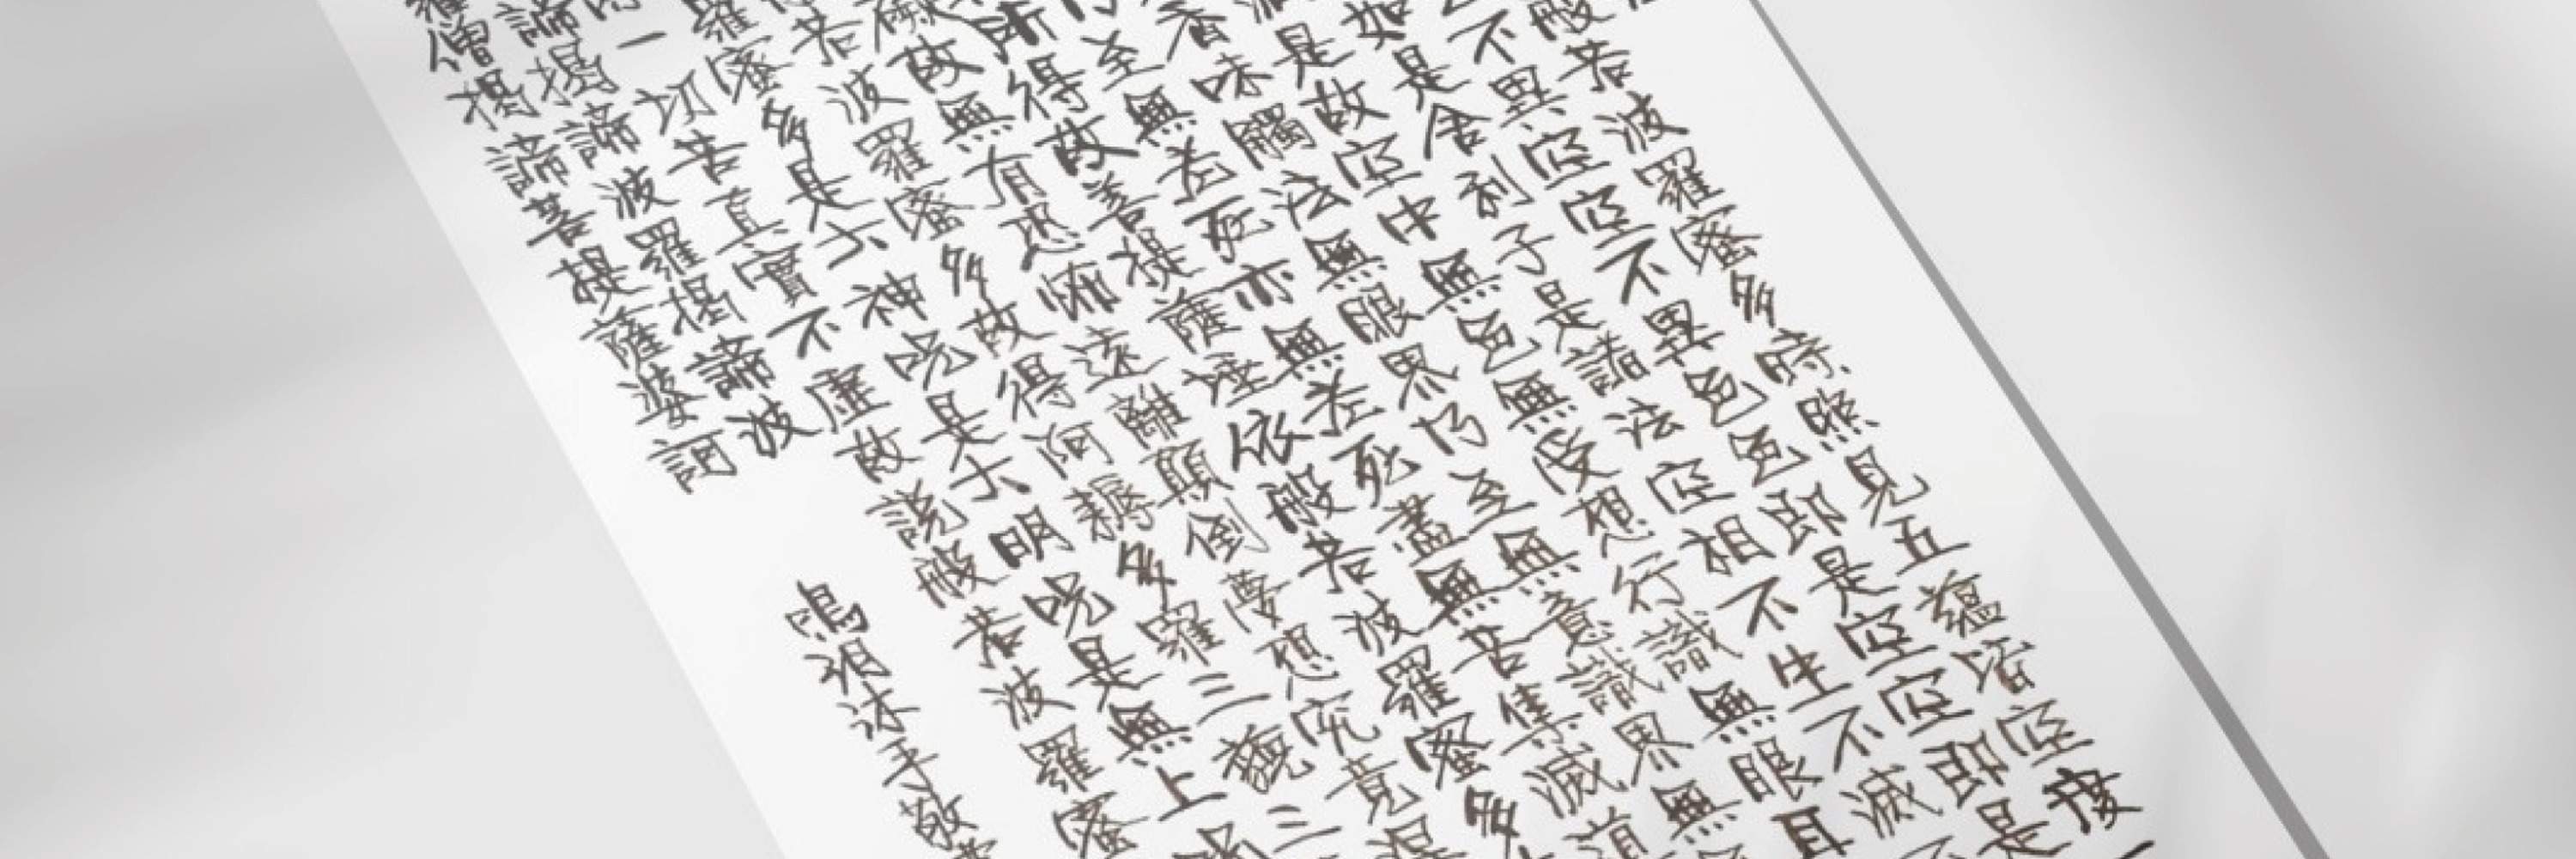 般若波羅蜜多時照見五蘊皆空度一
不異空空不異色色即是空空即是
如是舍利子是諸法空相不生不滅不
是故空中無色無受想行識無眼耳
香味觸法無眼界乃至無意識界無
至無老死亦無老死盡無苦集滅道
所得故菩提薩埵依般若波羅蜜多
故無有恐怖遠離顛倒夢想究竟涅
若波羅蜜多故得阿耨多羅三藐三
羅蜜多是大神咒是大明咒是無上咒
一切苦真實不虛故說般若波羅蜜
諦揭諦波羅揭諦波
羅僧揭諦菩提薩婆訶
沐手敬